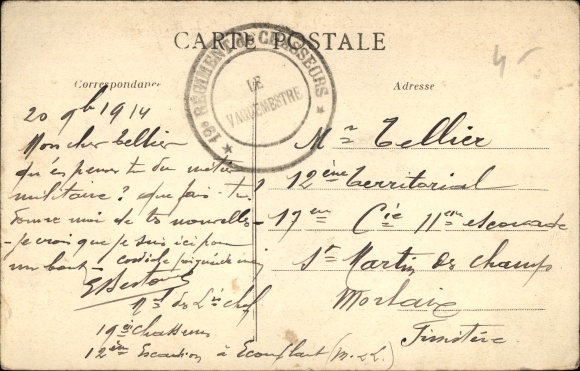 CARTE POSTALE
19e RÉGIMENT de CHASSEURS
LE
VAGUEMESTRE
Correspondance
Adresse
20 9b 1914
Mon cher Tellier
qu'en penses tu du métier
militaire? que fais tu
donne moi de tes nouvelles
- je crois que je suis ici pour
un bout - cordiale poignée de main
Mal des L
19e chasseurs
12ème Escadron à Ecouflant (M-&-L.)
Mr Tellier
12ème territorial
17em Cie 11em escouade
St Martin des Champs
Morlaix
Finistère